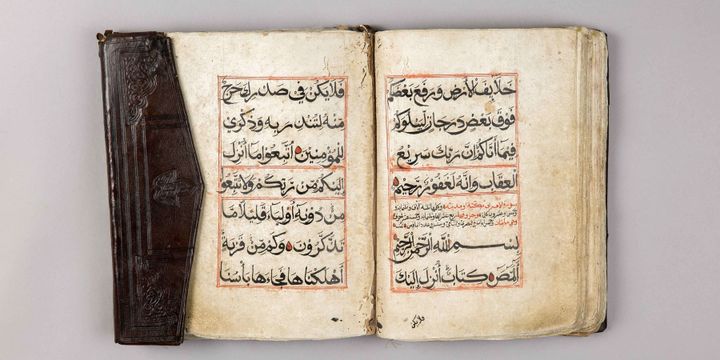 خلايف الأرض ورفع بعضكم
فوق بعض درجات ليبلوكم
فيما اتاكم ان ربك سريع
العقاب وانه لغفور رحيم
بسم الله الرحمن الرحيم
المص كتاب أنزل إليك
فلا يكن
فلا يكن في صدرك حرج
منه لتنذر به وذكرى
للمؤمنين اتبعوا ما أنزل
إليكم من ربكم ولا تتبعوا
من دونه أولياء قليلا ما
تذكرون وكم من قرية
أهلكناها فجاءها بأسنا